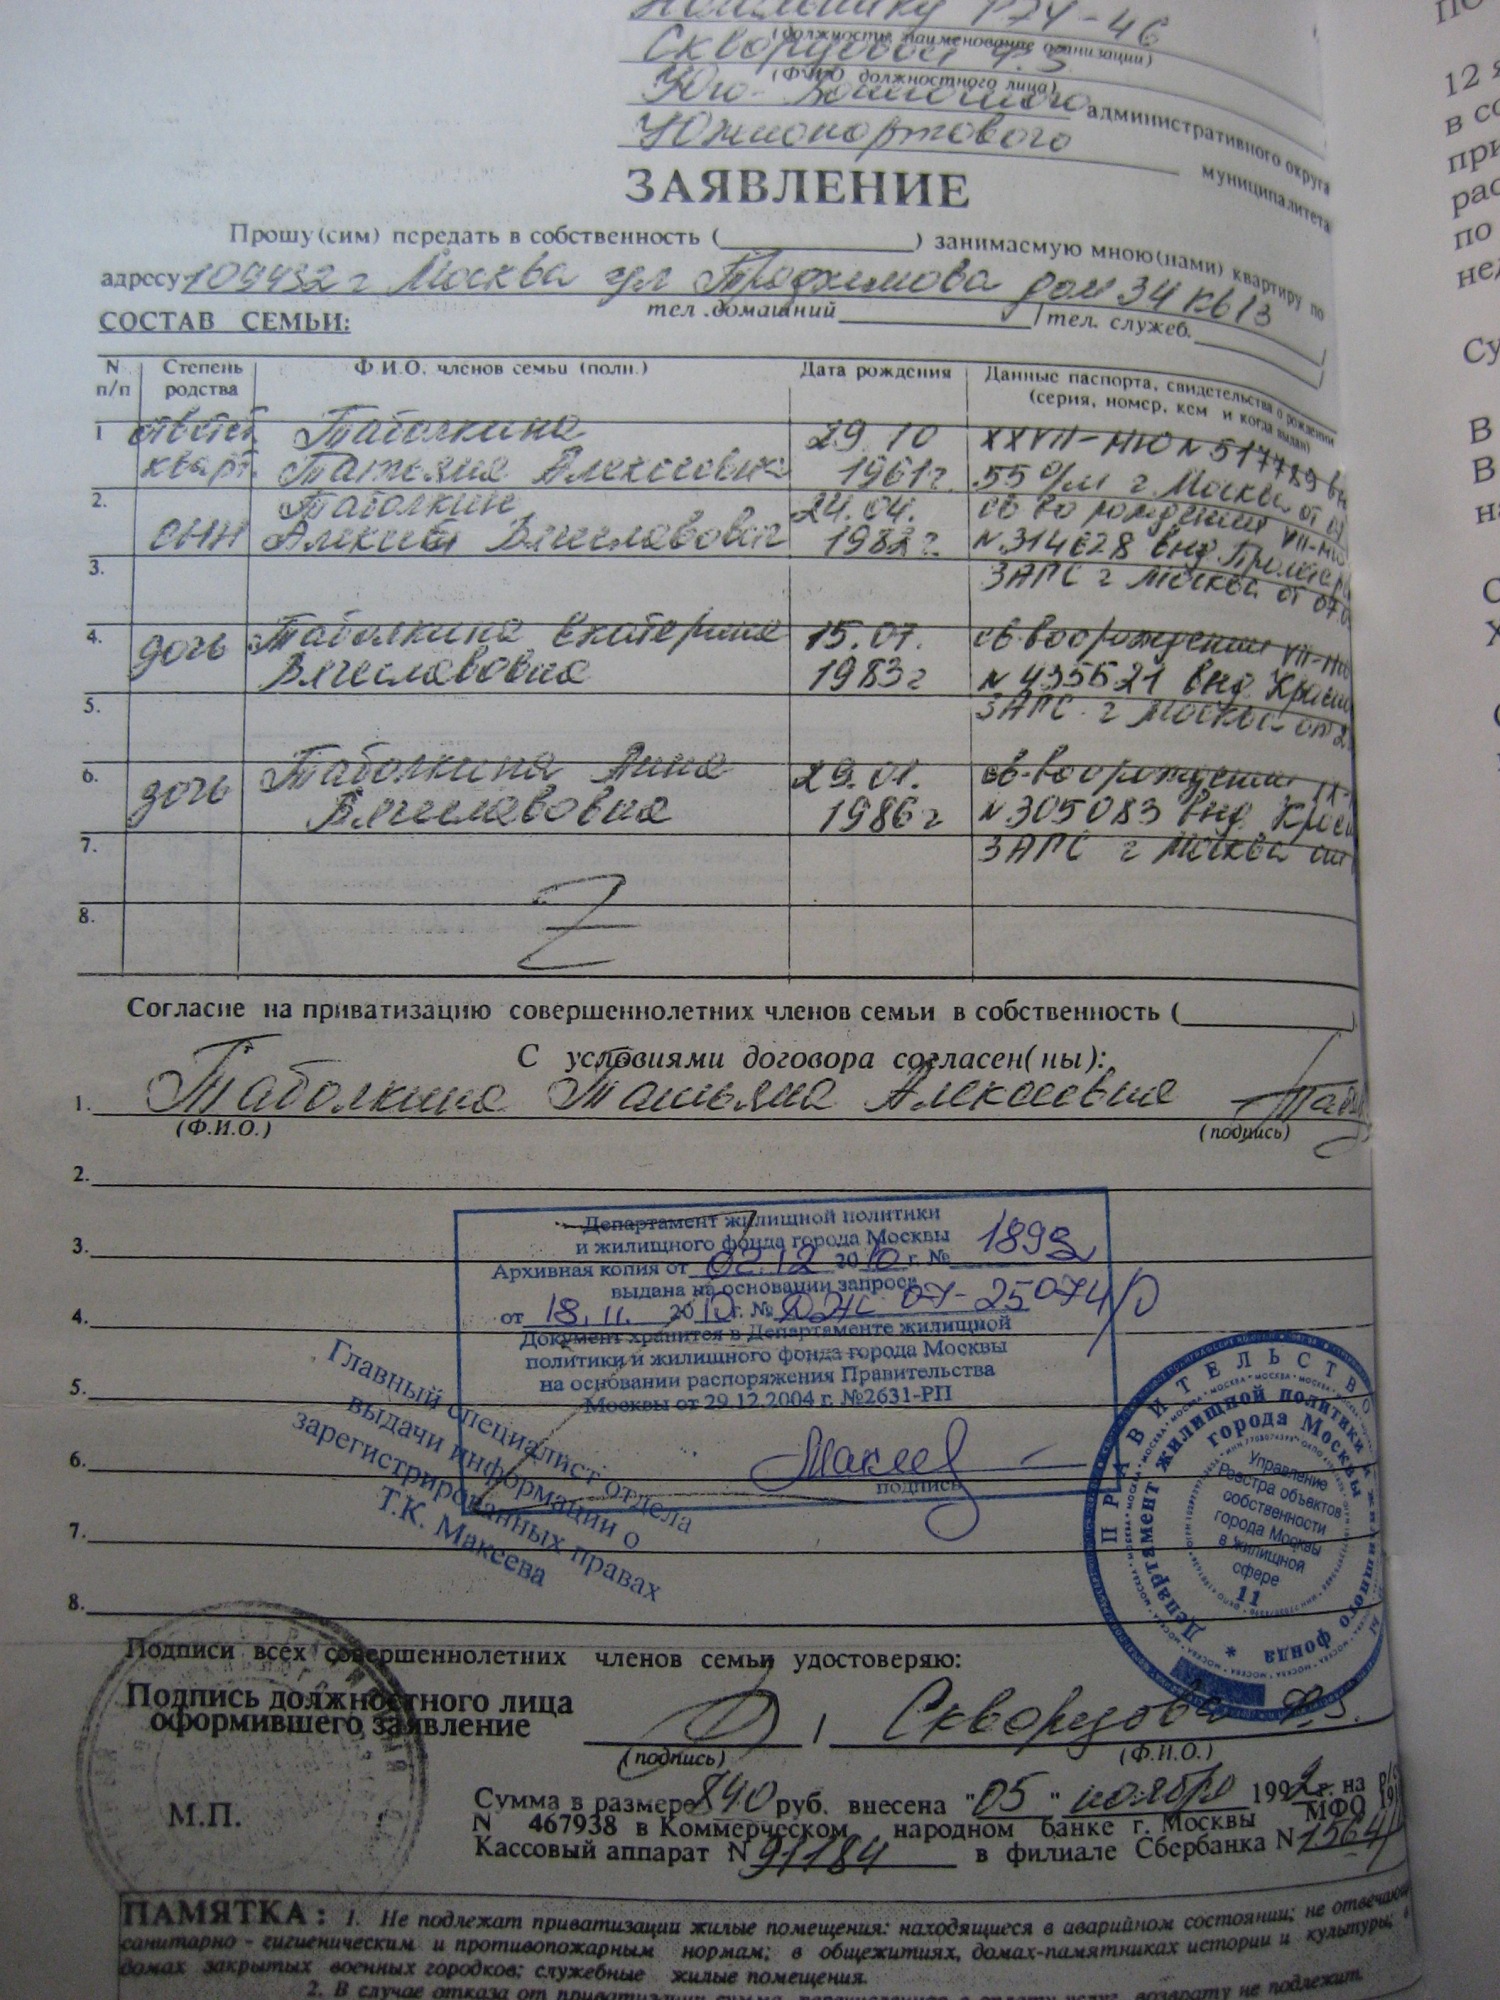 Начальнику РЭУ-46
(должность, наименование организации)
Скворцовой Ф.З.
(Ф.И.О. должностного лица)
Юго-Восточного административного округа
Южнопортового муниципалитета
ЗАЯВЛЕНИЕ
Прошу(сим) передать в собственность (____) занимаемую мною(нами) квартиру по
адресу 109432 г Москва ул Трофимова дом 34 кв 13
тел. домашний / тел. служеб.
СОСТАВ СЕМЬИ:
N п/п Степень родства Ф.И.О. членов семьи (полн.) Дата рождения Данные паспорта, свидетельства о рождении (серия, номер, кем и когда выдан)
1 ответ. Таболкина 29.10 XXVII-МЮ N 517789
кварт. Татьяна Алексеевна 1961г. 55 о/м г Москвы от
2. Таболкин 24.04. св во рождении VII-МЮ
сын Алексей Вячеславович 1982г. N 314628 выд.
3. ЗАГС г Москвы от 07.
4. дочь Таболкина Екатерина 15.07. св-во о рождении VII-МЮ
Вячеславовна 1983г N 435521 выд.
5. ЗАГС г Москвы от 2
6. дочь Таболкина Анна 29.01. св-во о рождении
Вячеславовна 1986г N 305083 выд.
7. ЗАГС г Москвы от
8. Z
Согласие на приватизацию совершеннолетних членов семьи в собственность (
С условиями договора согласен(ны):
1. Таболкина Татьяна Алексеевна
(Ф.И.О.) (подпись)
2.
3.
4.
5.
6.
7.
8.
Департамент жилищной политики
и жилищного фонда города Москвы
Архивная копия от 02.12 2010 г. № 1899
выдана на основании запроса
от 18.11. 2010 г. № 07-25074/0
Документ хранится в Департаменте жилищной
политики и жилищного фонда города Москвы
на основании распоряжения Правительства
Москвы от 29.12.2004 г. №2631-РП
Макеев
подпись
Главный специалист отдела
выдачи информации о
зарегистрированных правах
Т.К. Макеева
ПРАВИТЕЛЬСТВО
Департамент жилищной политики и жилищного фонда
города Москвы
Управление
Реестра объектов
собственности
города Москвы
в жилищной
сфере
11
Подписи всех совершеннолетних членов семьи удостоверяю:
Подпись должностного лица
оформившего заявление
Скворцова Ф.З.
(подпись) (Ф.И.О.)
М.П.
Сумма в размере 840 руб. внесена "05" ноября 1992 г. на р/с
N 467938 в Коммерческом народном банке г. Москвы МФО
Кассовый аппарат N 91184 в филиале Сбербанка N 1564/
ПАМЯТКА: 1. Не подлежат приватизации жилые помещения: находящиеся в аварийном состоянии; не отвечающ
санитарно-гигиеническим и противопожарным нормам; в общежитиях, домах-памятниках истории и культуры; в
домах закрытых военных городков; служебные жилые помещения.
2. В случае отказа от приватизации сумма, перечисленная в оплату услуг, возврату не подлежит.
12
в со
при
рас
по
нед
Су
В
В
на